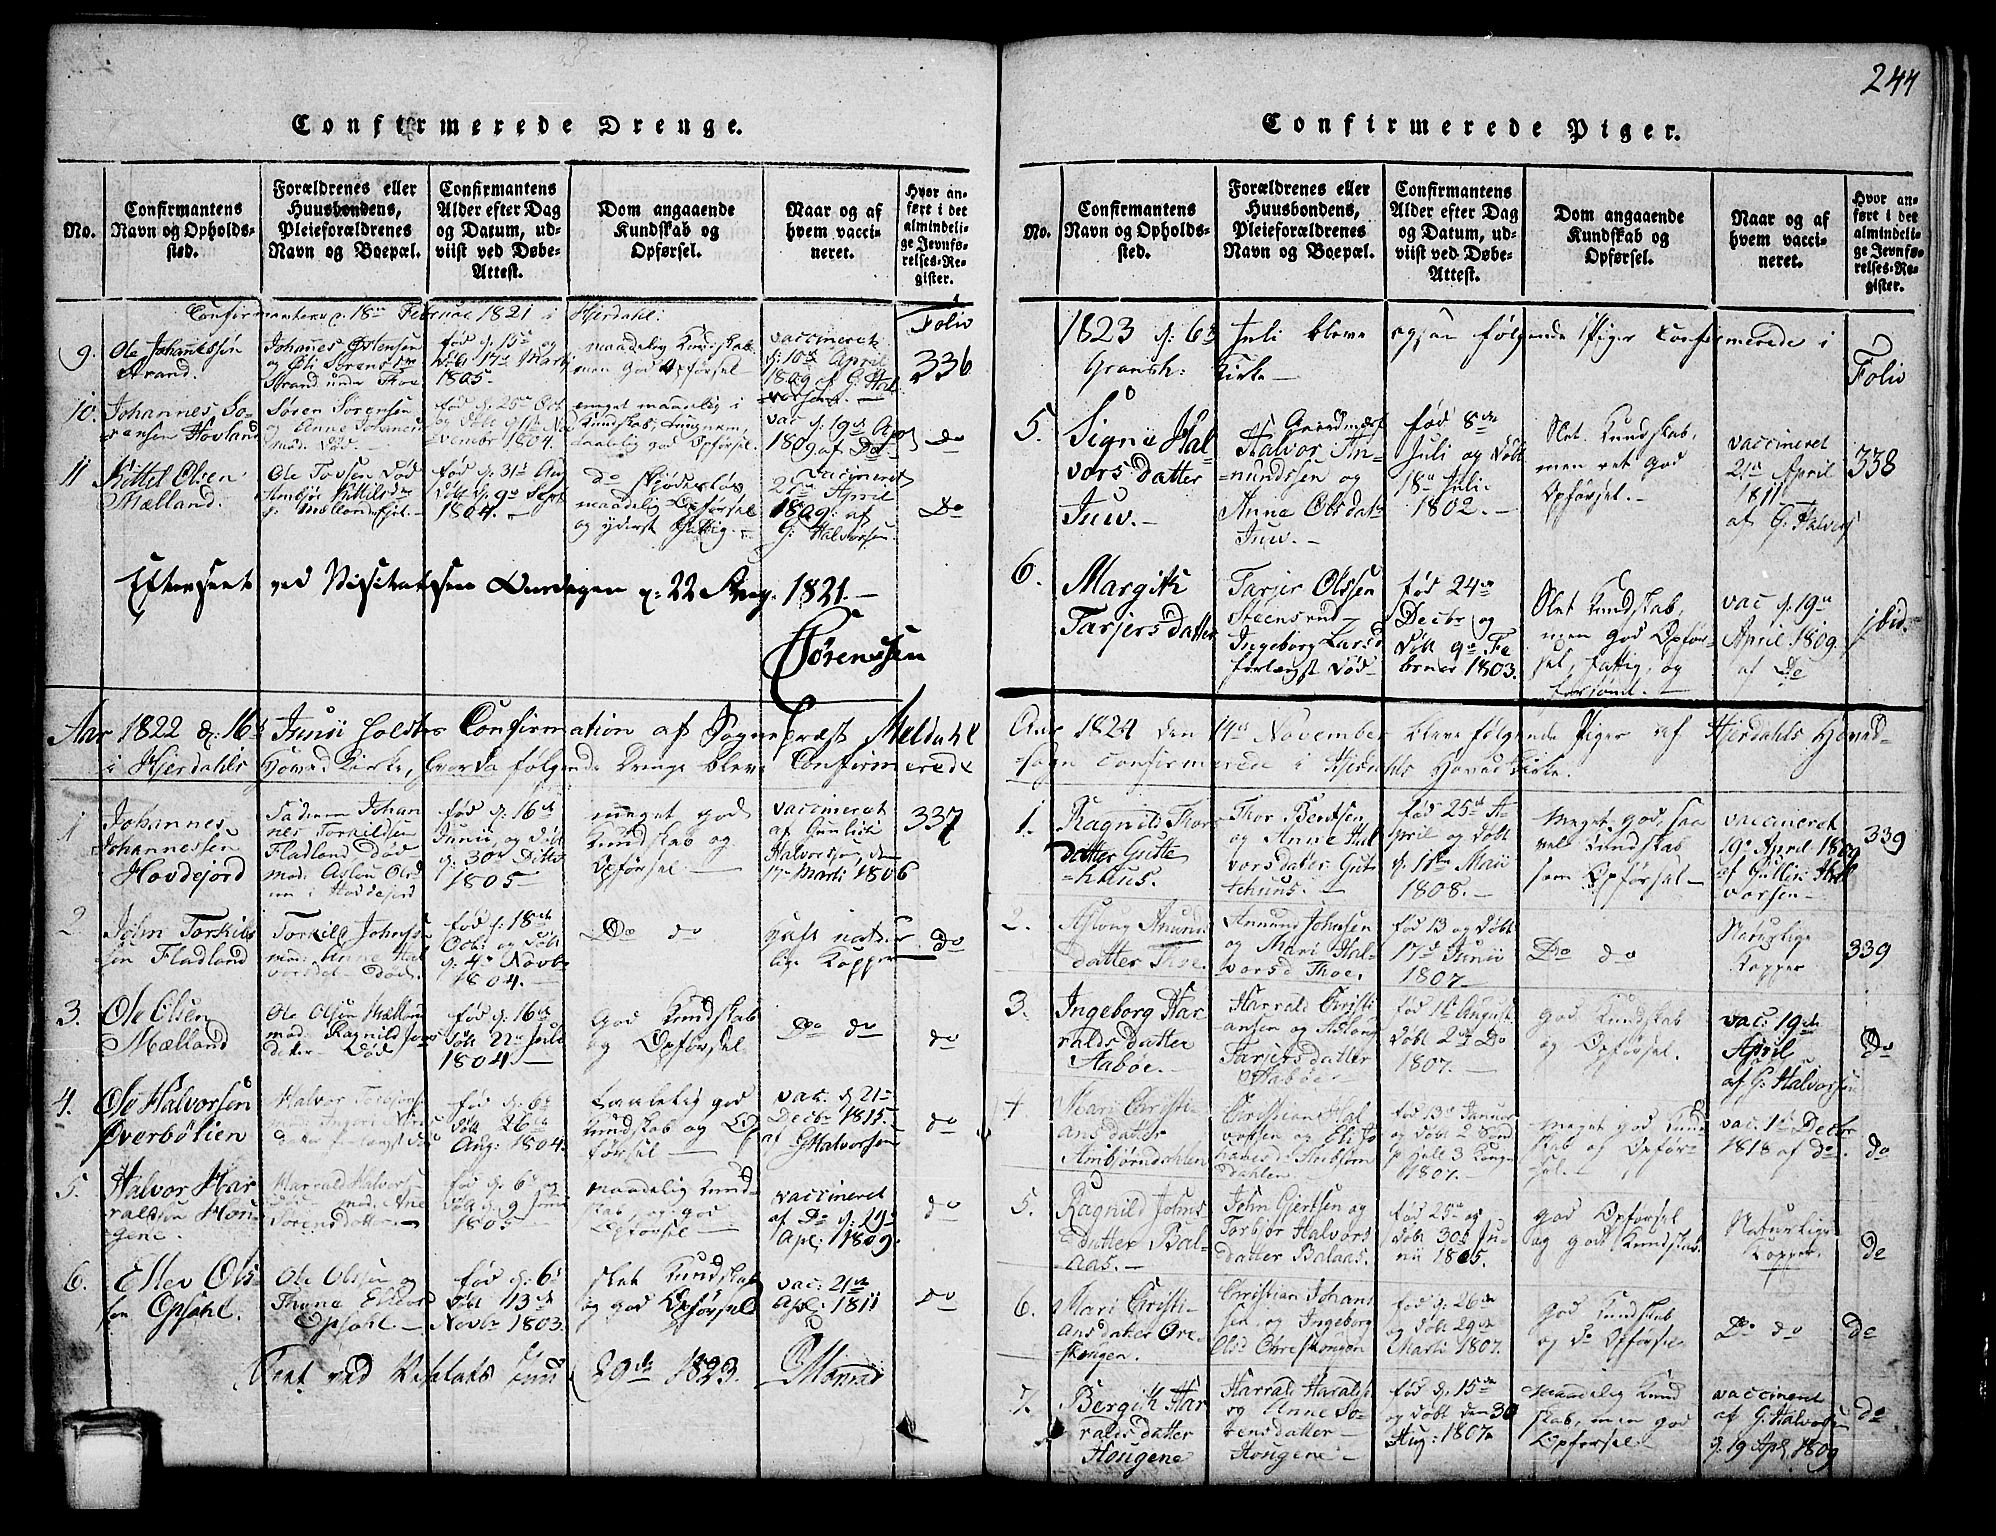 244
Confirmerede Drenge.
No.
Confirmantens
Navn og Opholds-
sted.
Forældrenes eller
Huusbondens,
Pleieforældrenes
Navn og Boepæl.
Confirmantens
Alder efter Dag
og Datum, ud-
viist ved Døbe-
Attest.
Dom angaaende
Kundskab og
Opførsel.
Naar og af
hvem vacci-
neret.
Hvor an-
ført i det
almindeli-
ge Jevnfø-
relses-Re-
gister.
1821 i Hjerdahl:
Folio
9.
Ole Johannessøn
Strand.
Johannes Østensen
og Øli Sørensen
Strand under Thoe
fød d: 15de og
døbt 17de Marti
1805.
maadelig Kundskab
men god Opførsel
vaccineret
d: 10de April
1809 af G: Hal-
vorsen.
336
10.
Johannes Sø-
rensen Hovland
Søren Sørensen
og Anne Johannes
mod: død
fød d: 25de Oct
og døbt d 1st No-
vembr 1804.
meget maadelig i
Kundskab,
god Opførsel.
vac d: 19de Apr
1809 af Do
do
11
Kittel Olsen
Mælland.
Ole Tovsen død
fød d: 31de Aug
døbt d: 9de Sept
1804.
do skjødesløs
maadelig Opførsel
og yderst fattig.
Vaccineret
21de April
1809: af
G: Halvorsen.
Do
Efterseet ved Visitatsen Onsdagen d: 22 Aug. 1821.
Sørenssen
Aar 1822 d: 16de Junii holdtes Confirmation af Sognepræst Meldahl
i Hjerdahls Hoved Kirke, hvorda følgende Drenge bleve Confirmerede
1
Johannes
Johannessen
Hovdejord
Fladland død
fød d: 16de
Junii, og døbt
d: 30de Ditto
1805
meget god
Kundskab og
Opførsel
vaccineret
af Gunlik
Halvorsen, den
17de Marti 1806
337
2
John Torkils
sen Fladland
Torkild Johnsen
fød d: 18de
Octr og døbt
d: 4de Novbr
1804.
Do do
haft naturlige
Kopper
do
3.
Ole Olsen
Mælland
Ole Olsen Mælland
mod: Ragnild Jons
dater død
fød d: 16de
døbt 22de Julii
1804.
God Kundskab
og Opførsel
Do do
do
4.
Ole Halvorsen
Øverbølien
fød d: 6te
døbt 26de
Aug: 1804.
Taalelig god
Kundskab og Op
førsel
vac: d: 21de
Decbr 1815.
af GHalvorsen
do
5.
Halvor Har
raldsen Hou-
gene.
Harrald Halvors
mod. Ane
Sørensdatter.
fød d: 6te og
døbt d: 9 Junii
1805
maadelig Kund-
skab, og god
Opførsel
vaccineret
af Do d: 29de
Apl: 1809.
do
6.
Ellev Ols-
sen Opsahl.
Ole Olssen og
Opsahl.
fød d: 6te
døbt 13de
Novbr 1803.
slet Kundskab
og god Opførsel
vac: 21de
Apl: 1811
do
Seet ved Visitats 1823. Monrad
Confirmerede Piger.
No.
Confirmantens
Navn og Opholds-
sted.
Forældrenes eller
Huusbondens,
Pleieforældrenes
Navn og Boepæl.
Confirmantens
Alder efter Dag
og Datum, ud-
viist ved Døbe-
Attest.
Dom angaaende
Kundskab og
Opførsel.
Naar og af
hvem vacci-
neret.
Hvor an-
ført i det
almindeli-
ge Jevnfø-
relses-Re-
gister.
1823 d: 6te Juli bleve ogsaa følgende Piger Confirmerede i
Gransh: Kirke
Folio
5.
Signe Hal-
vorsdatter
Juv.
Gaardmand
Halvor An-
mundssen og
Anne Olsdatr
Juv.
fød 8de
Juli og døbt
18de Juli
1802.
Slet Kundskab,
men ret god
Opførsel.
vaccineret
21de April
1811
af G: Halvors
338
6.
Margith
Tarjersdatter
Tarjer Olssen
Steensrud
Ingeborg Larsd
forlængst død
fød 24de
Decbr og
døbt 9de Fe-
bruar 1803.
Slet Kundskab,
men god Opfør-
sel, fattig, og
forsømt.
vac d: 19de
April 1809.
af Do
ibid.
Aar 1824 den 14de November bleve følgende Piger af Hjerdahls Hoved-
sogn confirmerede i Hjerdahls Hoved Kirke.
1.
Ragnild Thors
datter Gutte
huus.
Thor Bentsen
og Anne Hal
vorsdater Gut-
tehuus.
fød 25de A-
pril og døbt
d: 11te Maii
1808.
Meget god, saa
vel Kundskab
som Opførsel
vaccineret
19de April 1809
af Gullik Hal
vorsen
339
2.
Asloug Anunds
datter Thoe.
Annund Johnsen
og Mari Hal-
vorsd Thoe.
fød 13 og døbt
17de Junii
1807.
Do do
Naturlige
Kopper
339
3.
Ingeborg Har
raldsdatter
Aabøe.
Harrald Christi
ansen og Aslaug
Tarjersdatter
Aabøe
fød 16 August
døbt 2de Do
1807.
God Kundskab
og Opførsel.
vac: 19de
April
af G: Halvorsen
Do
4
Mari Christi-
ansdatter
Ambjørndahlen
Christian Hal
vorsen og
dahlen
fød 13de Januar
og døbt 2 Sønd
p Hell 3 Konger
1807.
Meget god Kund
skab og Opfør-
sel.
vac. 12 Decbr
1818 af do
do
5.
Ragnild Johns
datter Bal-
aas.
John Gjertsen og
Torbjør Halvors
datter Balaas.
fød 25de og
døbt 30te Ju-
nii 1805.
God Opførsel
og god Kundskab.
Naturlige
Kopper.
do
6.
Mari Christi-
ansdater Øre-
skougen.
Christian Johans
sen, og Ingeborg
Olsd Øreskougen
fød d: 26de
og døbt 29de
Marti 1807.
God Kundskab
og Do Opførsel.
Do do
do
7.
Bergith Har
raldsdatter
Hougene
Harrald Haralds
og Anne Sø-
rensdatter
Hougene
fød d: 15de
og døbt den 30
Aug: 1807.
Maadelig Kund
skab, men god
Opførsel
vaccineret
af G: Halvorsen
d: 19 Apl 1809
do